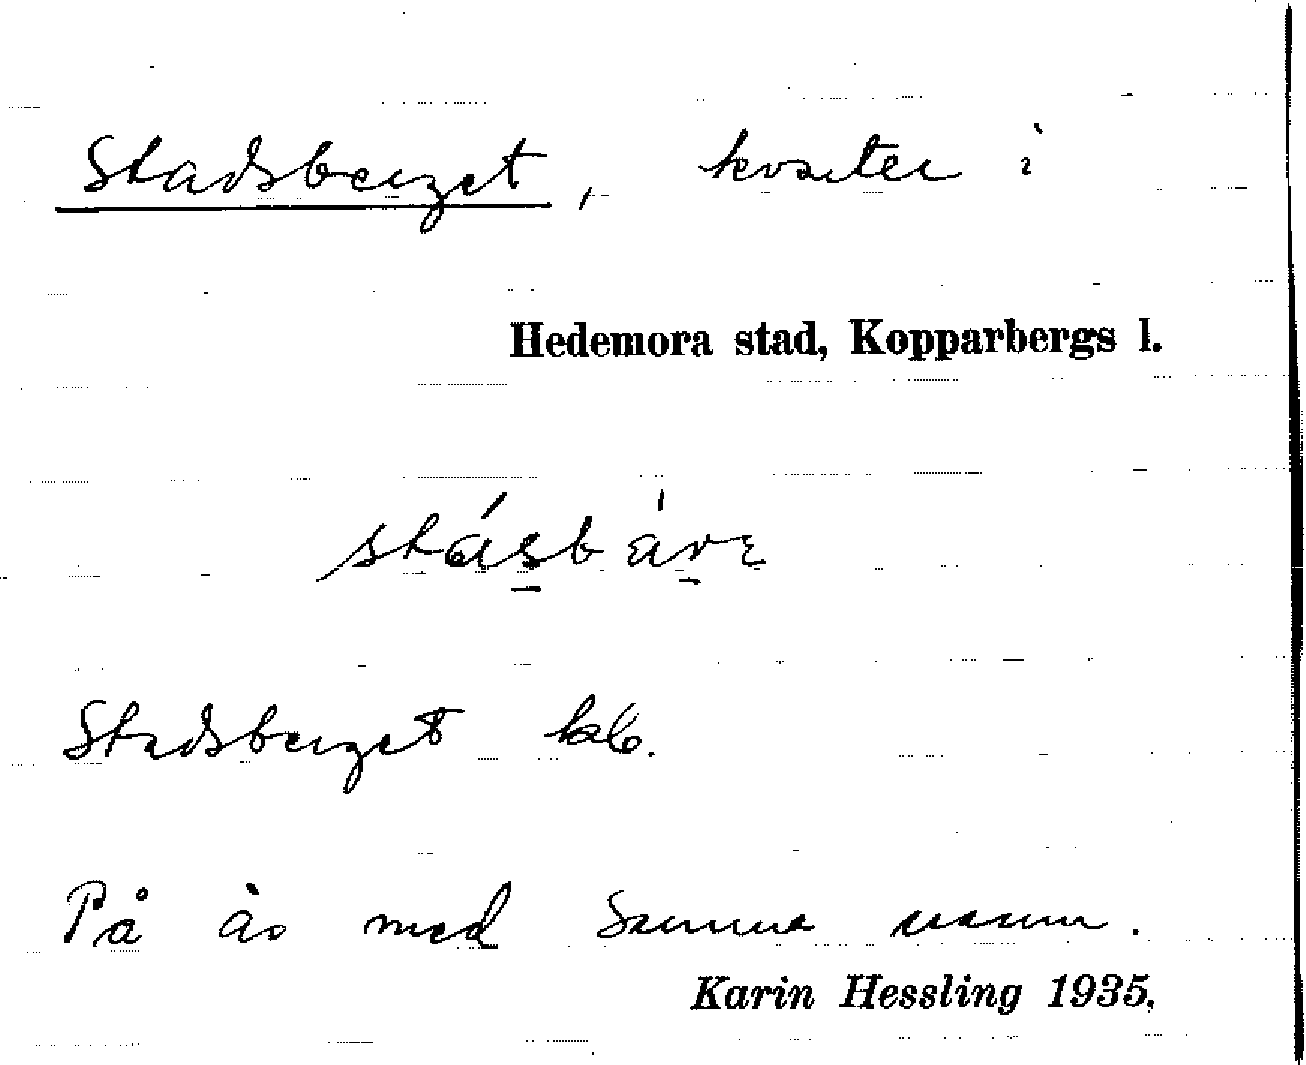 Stadsberget, kvarter i
Hedemora stad, Kopparbergs l.
Stadsberget kb.
På ås med samma namn.
Karin Hessling 1935.